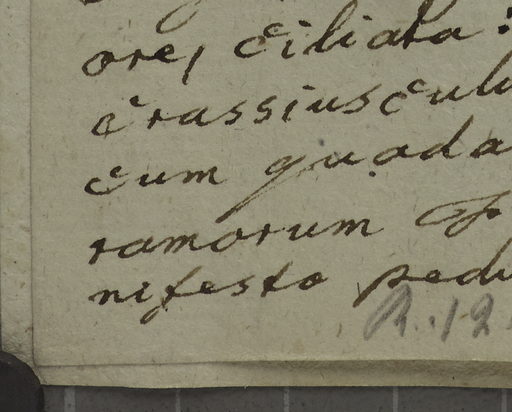 ore, ciliata:
crassiuscul
cum quada
ramorum
nifesto pedu
R. 12